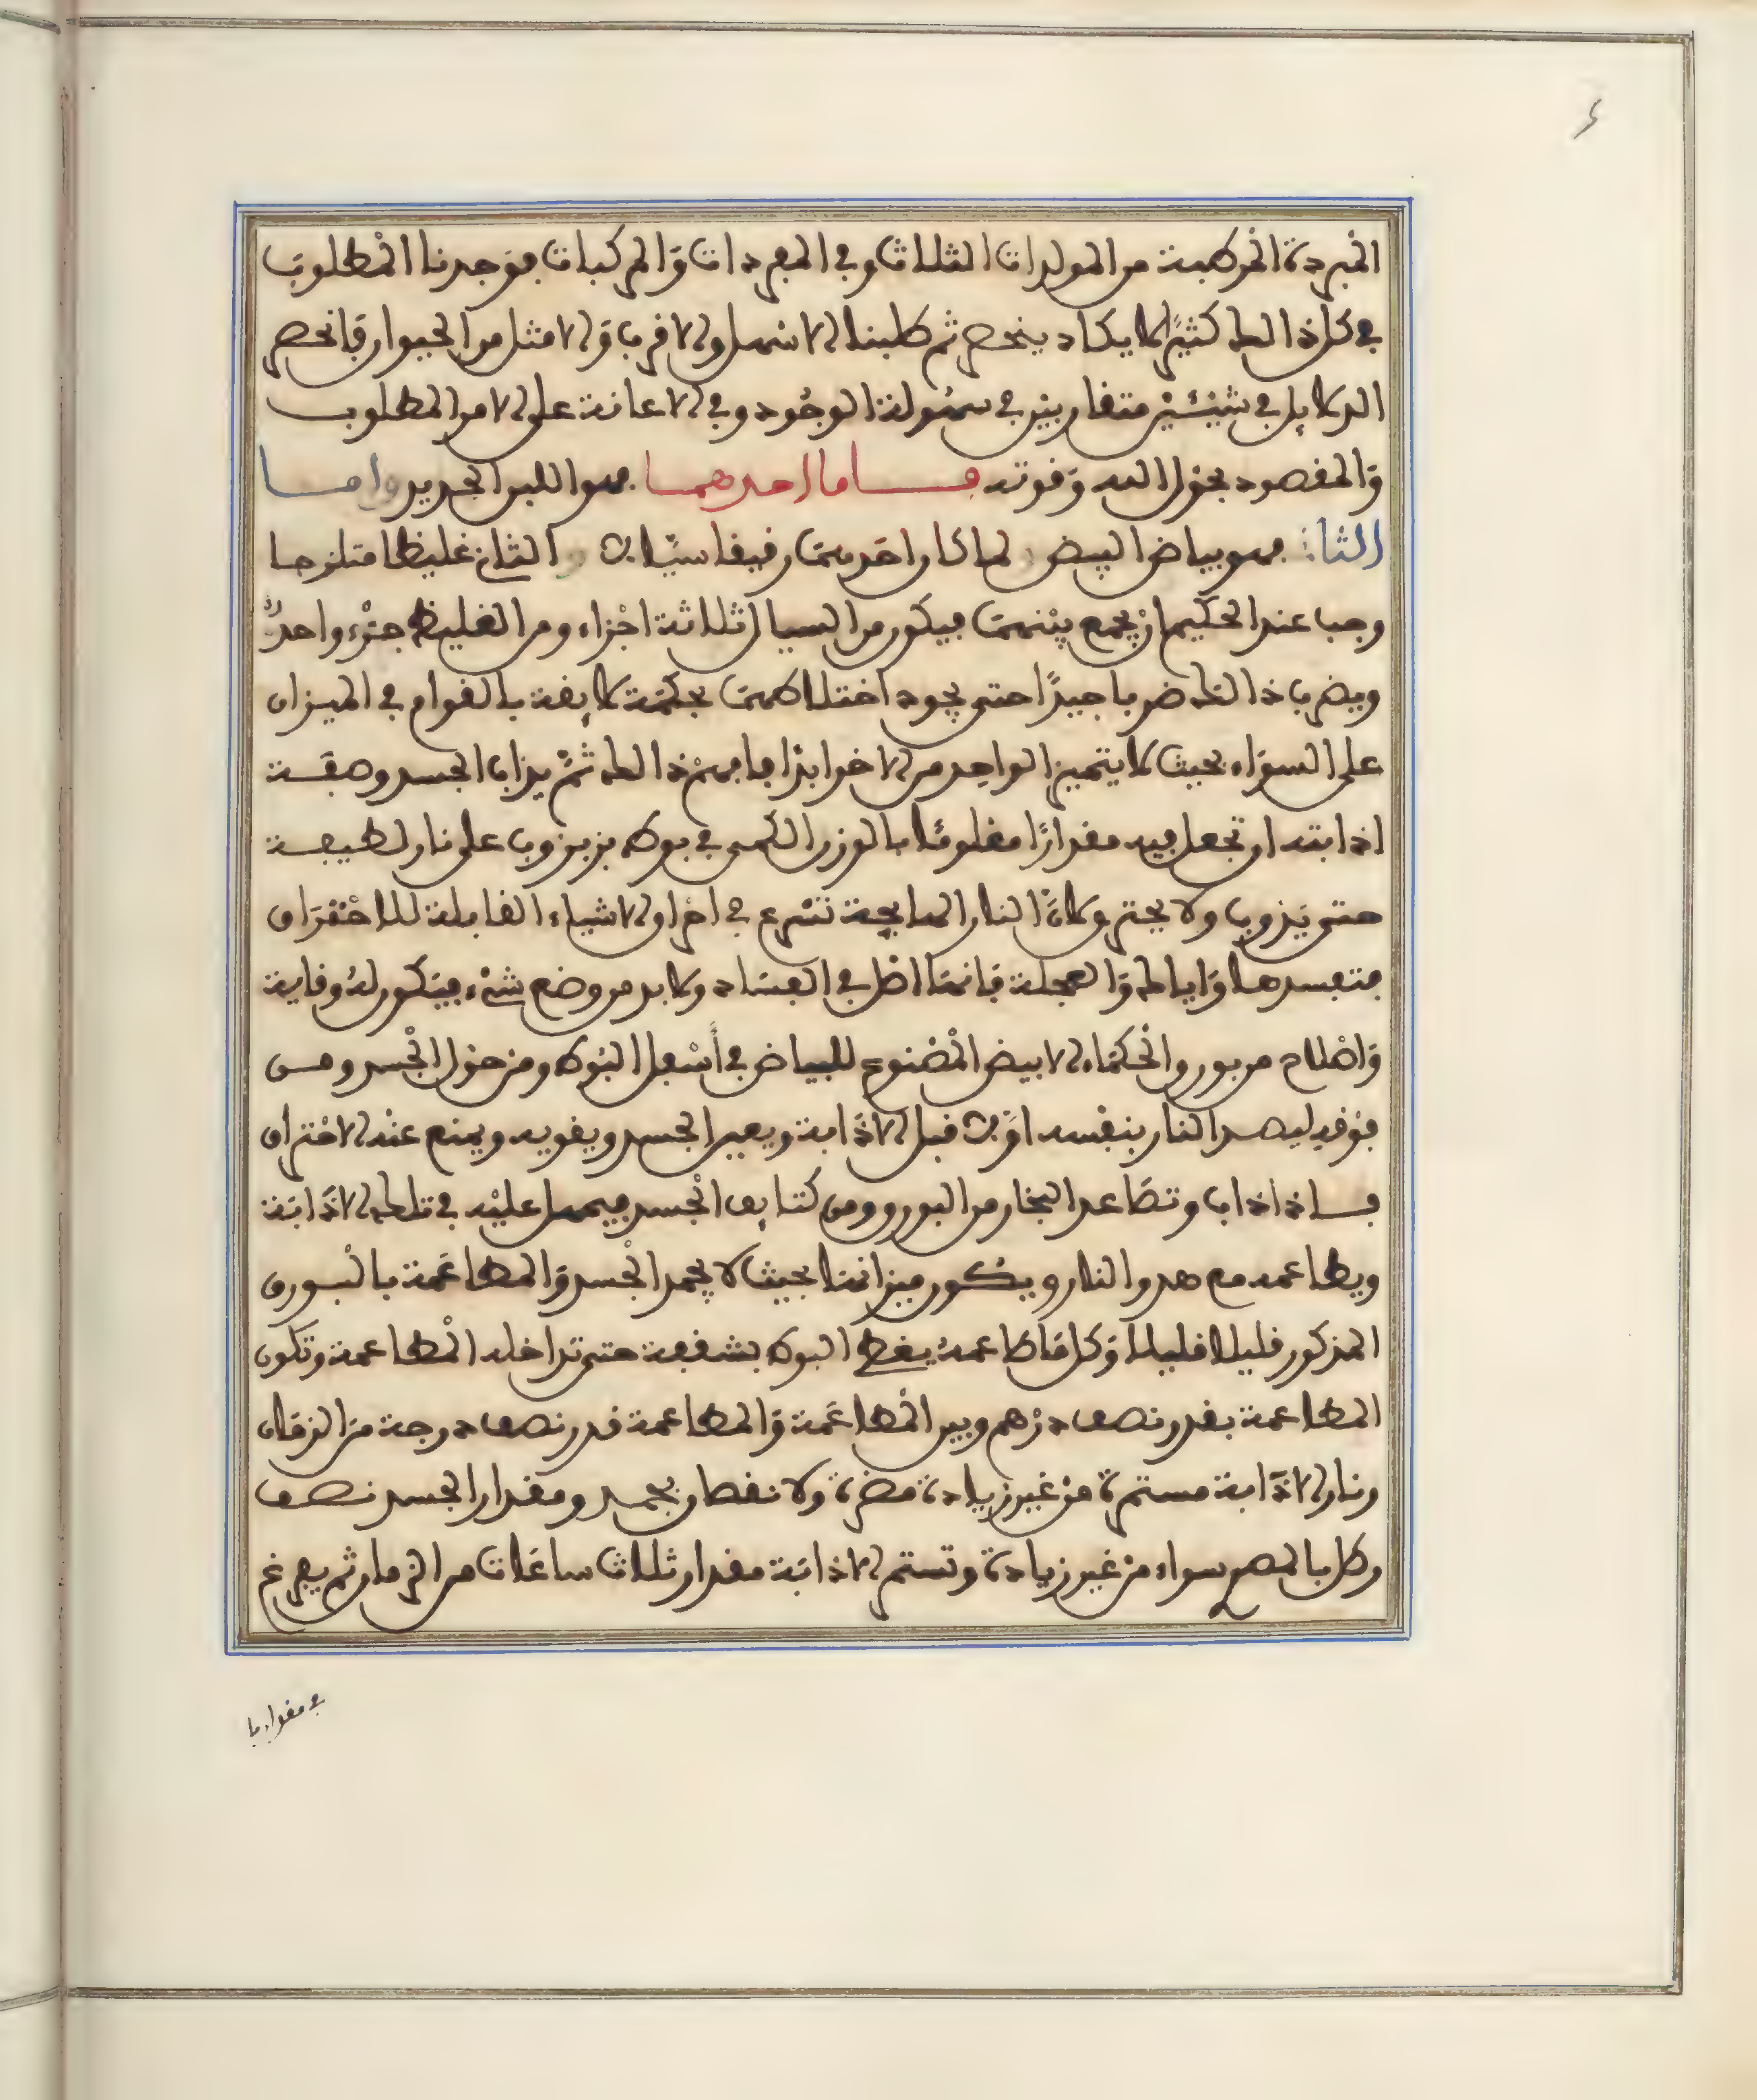 المبردة المركبة من المولدات الثلاث وفي المفردات وَالمركبات فوَجدنا المْطلوبَ
في كل ذالك كثيرًا لا يكاد ينحصر ثم طلبنا الاسهل والاقرب وَالامثل من الحيوان فانحصر
الدلايل في شيْئيْن متقاربيْن في سهُولة الوجُود وفي الاعانة على الامر المطلوب
وَالمقصود بحَول الله وَقوته فاما احدهما فهو اللبن الحديد واما
الثاني فهو بياض البيض لما كان احَدهمَا رقيقا سيّالا والثاني غليظا متلزجا
وجب عند الحكيم انْ يجمع بيْنهمَا فيكون من السيال ثلاثة اجْزاء ومن الغليظ جزْء واحدٌ
ويضرب ذالك ضربا جيدًا حتى يجود اختلاطهمَا بحكمَة لايقة بالقوام في الميزان
على السوَاء بحيث لا يتميز الواحِد من الاخر ابدًا فافهمْ ذالك ثمّ يذاب الجسد وصفَة
اذابته ان تجعل فيه مقدارًا مغلومًا بالوزن الكمي في بوط بربروب على نار لطيفة
حتى يَذوب ولا يحترق لانّ النار المايجة تسْرع في احْراق الاشياء القابلة للاحْترَاق
فتفسدها وَاياك وَالعجلة فانهَا اصْل في الفسَاد ولا بد من وضع شيْء فيَكون لهُ وقاية
وَاصْلاح من بورق الحْكمَاء الابيض المصْنوع للبياض في أسْفل البَوط ومنْ حوْل الجْسد ومن
فوْقه ليصد النار بنفْسه اوّلا قبل الاذَابة ويعين الجْسد ويقويه ويمنع عنْه الاحْتراق
فاذا ذاب وتصَاعد البخار من البورق ومن كتايف الجْسد فيحمل عليْه في تلك الاذَابَة
ويطاعمه مع هدو النار ويكون ميزانهَا بحيث لا يجمد الجْسد وَالمطاعَمة بالبَورق
المذكور قليلا قليلا وَكل مَا طاعمهُ يغطى البوط بشقفة حتى تداخله المْطاعمة وتكون
المطاعمة بقدر نصف درْهم وبين المْطاعَمة وَالمطاعمة قدر نصف درجة منَ الزمَان
ونار الاذَابة مستمرة منْ غيْر زيادة مضرة ولا نقصان يجمد ومقدار الجسد نصف
رطل بالمصري سواء منْ غيْر زيادة وتستمر الاذابَة مقدار ثلاث ساعَات من الزمان ثم يفرغ